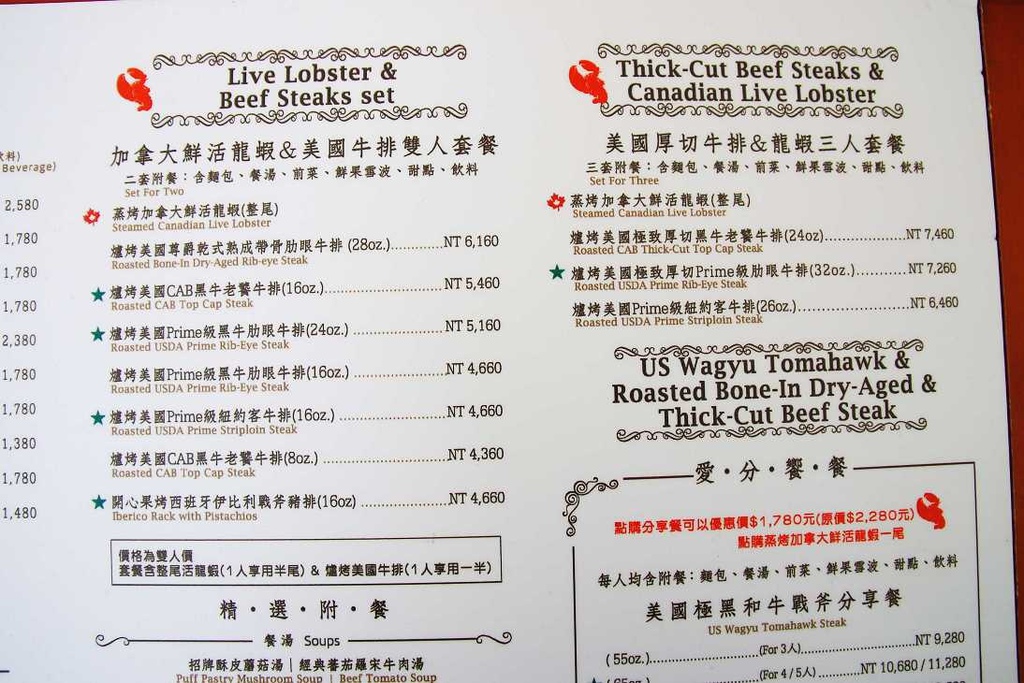 飲料)
Beverage)
2,580
1,780
1,780
1,780
2,380
1,780
1,780
1,380
1,780
1,480
Live Lobster &
Beef Steaks set
加拿大鮮活龍蝦&美國牛排雙人套餐
二套附餐：含麵包、餐湯、前菜、鮮果雪波、甜點、飲料
Set For Two
蒸烤加拿大鮮活龍蝦(整尾)
Steamed Canadian Live Lobster
爐烤美國尊爵乾式熟成帶骨肋眼牛排 (28oz.)............NT 6,160
Roasted Bone-In Dry-Aged Rib-eye Steak
★ 爐烤美國CAB黑牛老饕牛排(16oz.)..........................NT 5,460
Roasted CAB Top Cap Steak
★ 爐烤美國Prime級黑牛肋眼牛排(24oz.) ....................NT 5,160
Roasted USDA Prime Rib-Eye Steak
爐烤美國Prime級黑牛肋眼牛排(16oz.) ....................NT 4,660
Roasted USDA Prime Rib-Eye Steak
★ 爐烤美國Prime級紐約客牛排(16oz.) ........................NT 4,660
Roasted USDA Prime Striploin Steak
爐烤美國CAB黑牛老饕牛排(8oz.) ...........................NT 4,360
Roasted CAB Top Cap Steak
★ 開心果烤西班牙伊比利戰斧豬排(16oz) ....................NT 4,660
Iberico Rack with Pistachios
價格為雙人價
套餐含整尾活龍蝦(1人享用半尾) & 爐烤美國牛排(1人享用一半)
精・選・附・餐
餐湯 Soups
招牌酥皮蘑菇湯 | 經典蕃茄羅宋牛肉湯
Puff Pastry Mushroom Soup | Beef Tomato Soup
Thick-Cut Beef Steaks &
Canadian Live Lobster
美國厚切牛排&龍蝦三人套餐
三套附餐：含麵包、餐湯、前菜、鮮果雪波、甜點、飲料
Set For Three
蒸烤加拿大鮮活龍蝦(整尾)
Steamed Canadian Live Lobster
爐烤美國極致厚切黑牛老饕牛排(24oz)..................NT 7,460
Roasted CAB Thick-Cut Top Cap Steak
★ 爐烤美國極致厚切Prime級肋眼牛排(32oz.)...........NT 7,260
Roasted USDA Prime Rib-Eye Steak
爐烤美國Prime級紐約客牛排(26oz.)........................NT 6,460
Roasted USDA Prime Striploin Steak
US Wagyu Tomahawk &
Roasted Bone-In Dry-Aged &
Thick-Cut Beef Steak
愛・分・饗・餐
點購分享餐可以優惠價$1,780元(原價$2,280元)
點購蒸烤加拿大鮮活龍蝦一尾
每人均含附餐：麵包、餐湯、前菜、鮮果雪波、甜點、飲料
美國極黑和牛戰斧分享餐
US Wagyu Tomahawk Steak
( 55oz.)............................(For 3人)............................NT 9,280
★ (65oz.)............................(For 4 / 5人)............NT 10,680 / 11,280